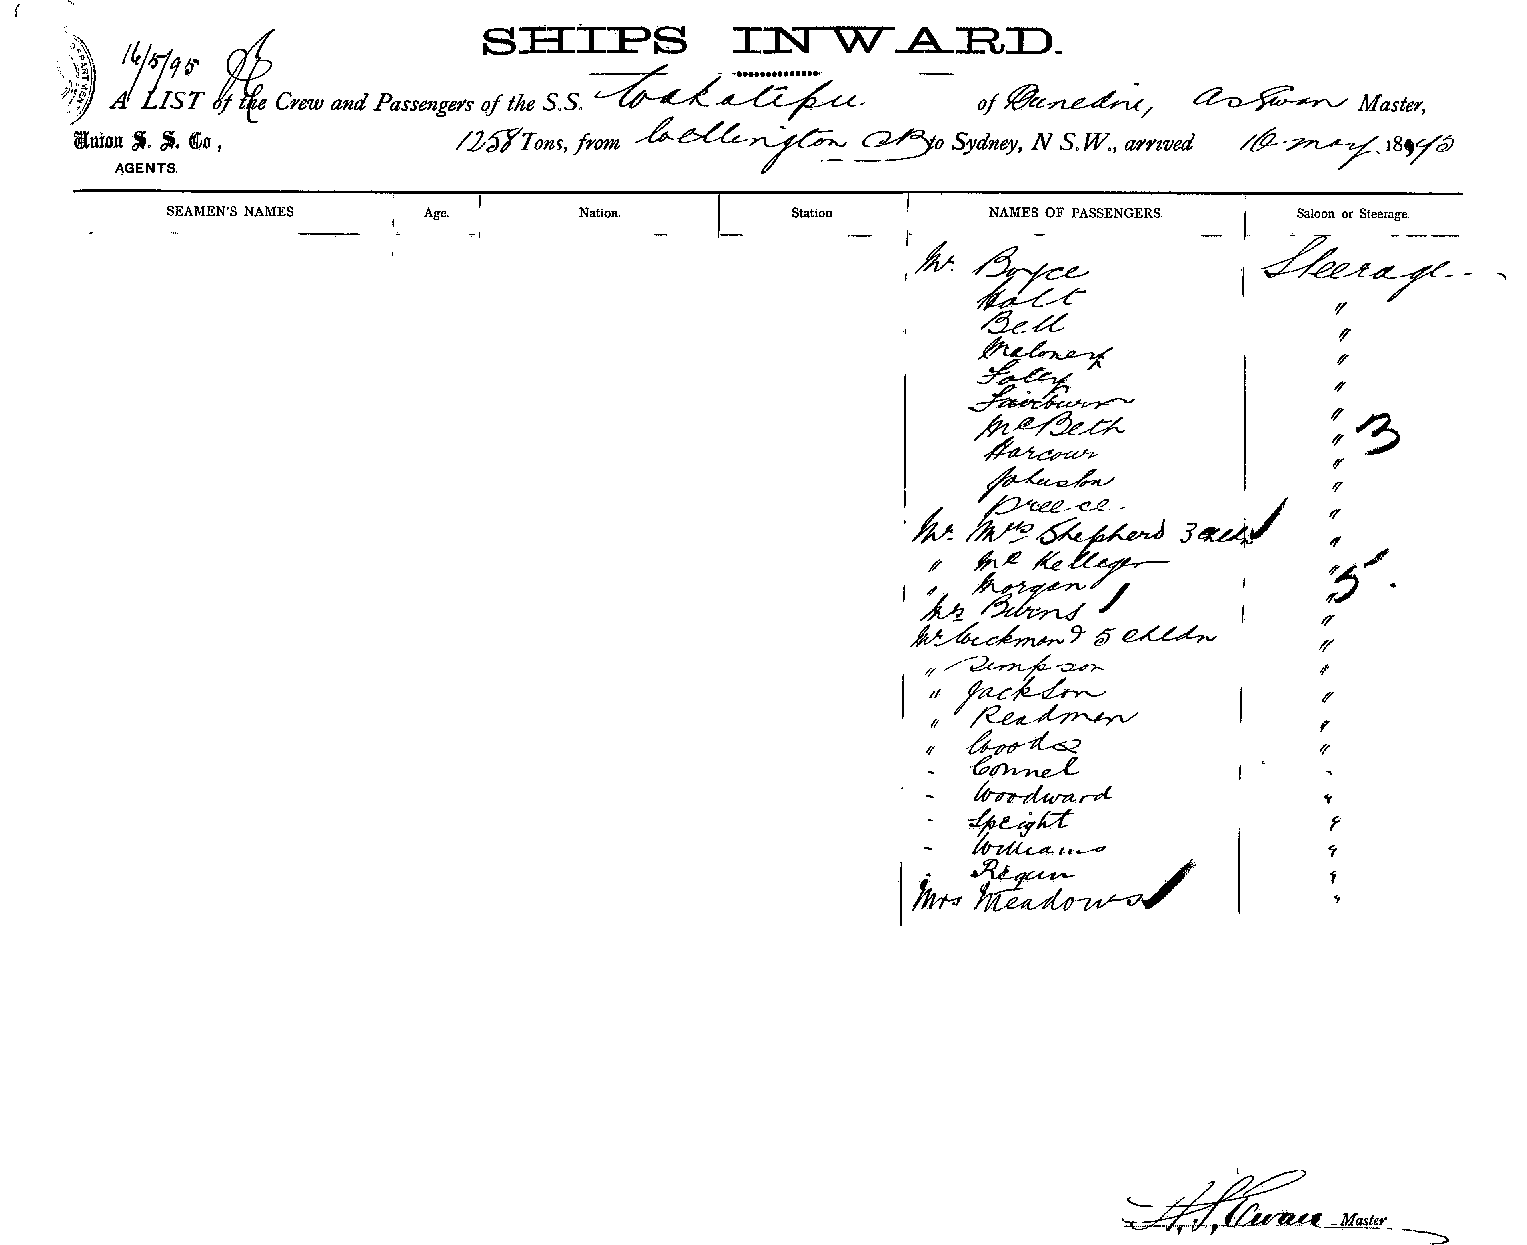 SHIPS INWARD.
16/5/95
A LIST of the Crew and Passengers of the S.S. Wakatipu of Dunedin, Master,
Union S. S. Co, 1258 Tons, from Wellington to Sydney, N S.W., arrived 16 May 1895
AGENTS.
SEAMEN'S NAMES Age. Nation. Station NAMES OF PASSENGERS. Saloon or Steerage.
Mr. Boyce Steerage
Holt "
Bell "
Maloney "
Foley "
Fairburn "
McBeth " 3
Harcour "
Johnston "
Preece "
Mr. Mrs Shepherd 3 "
" Mc "
" Morgan " 5
"
Mr Wickmond 5 Childn "
" Simpson "
" Jackson "
" Readman "
" Woods "
- Connel "
- Woodward "
- Speight "
- Williams "
"
Mrs Meadows "
Master